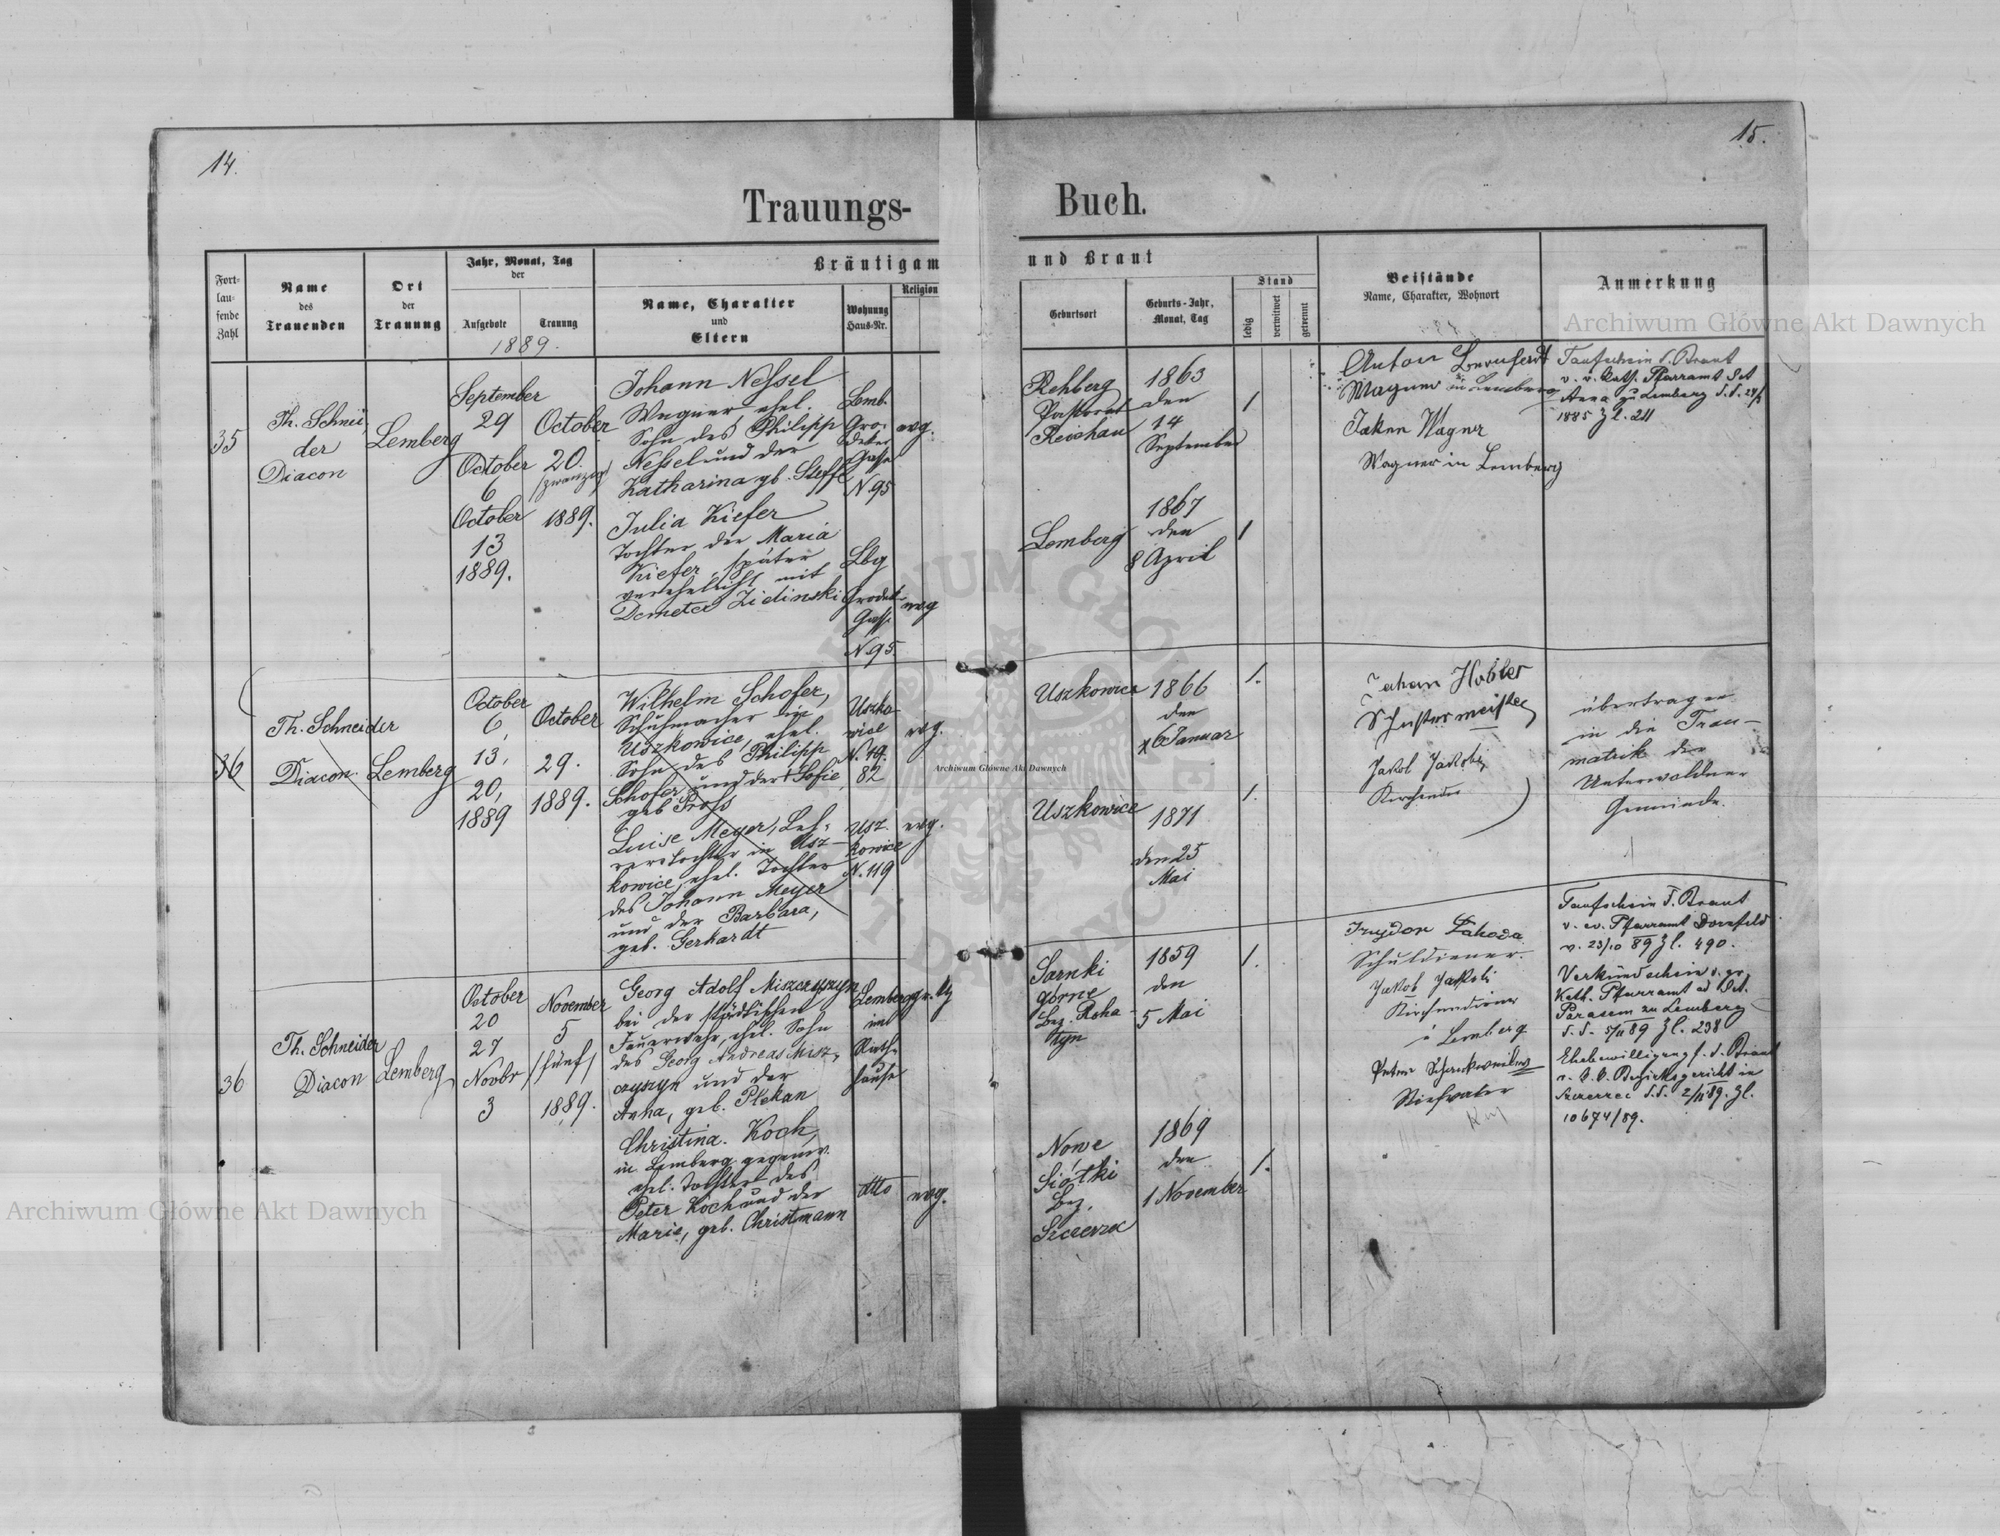 14.
15.
Trauungs-
Buch.
Fort-
lau-
fende
Zahl
Name
des
Trauenden
Ort
der
Trauung
Jahr, Monat, Tag
der
Aufgebote
Trauung
1889.
Bräutigam
Name, Charakter
und
Eltern
Wohnung
Haus-Nr.
Religion
und Braut
Geburtsort
Geburts-Jahr,
Monat, Tag
Stand
ledig
verwitwet
getrennt
Beistände
Name, Charakter, Wohnort
Anmerkung
35
Th. Schnei
der
Diacon
Lemberg
September
29
October
6
October
13
1889.
October
20.
/zwanzig/
1889.
Johann Nessel
Wagner, ehel.
Sohn des Philipp
Nessel und der
Katharina gb. Steffl
Lemb.
Gro-
deker
Gasse
N 95
evg.
Julia Kiefer
Tochter der Maria
Kiefer, später
verehelicht mit
Demeter Zielinski
Lbg
Grodek
Gasse
N. 95
evg
Rehberg
Pastorat
Reichau
1863
den
14
September
1
Lemberg
1867
den
8 April
1
Anton
Wagner in Lemberg
Wagner
Wagner in Lemberg
Taufschein d. Braut
v. r. kath. Pfarramt Set
Anna zu Lemberg
1885 Zl. 211
36
Th. Schneider
Diacon
Lemberg
October
6,
13,
20,
1889
October
29.
1889.
Wilhelm Schofer,
Schuhmacher in
Uszkowice, ehel.
Sohn des Philipp
Schofer und der Sofie
geb Pross
Uszko
wice
N. 49.
82
evg.
Luise Meyer, Leh-
rerstochter in Usz-
kowice, ehel. Tochter
des Johann Meyer
und der Barbara,
geb. Gerhardt
Usz.
kowice
N. 119
evg.
Uszkowice
1866
den
6 Januar
1.
Uszkowice
1871
den 25
Mai
1.
Johan
Schustermeister
Jakob Jakobi
Kirchendie
übertragen
in die Trau-
matrik der
Unterwaldner
Gemeinde.
36
Th. Schneider
Diacon
Lemberg
October
20
27
Novbr
3
November
5
/fünf/
1889.
Georg Adolf Miszczyszyn
bei der städtischen
Feuerwehr, ehel. Sohn
des Georg Andreas Misz-
czyszyn und der
Anna, geb. Plekan
Lemberg
im
Rath-
hause
Christina Koch,
in Lemberg gegenw.
ehel. Tochter des
Peter Koch und der
Marie, geb. Christmann
dtto
evg.
Sarnki
górne
Bez. Roha-
tyn
1859
den
5 Mai
1.
Nowe
Siółki
Bez.
Szczerzec
1869
den
1 November
1.
Schuldiener.
Jakob Jakobi
Kirchendiener
Lemberg
Peter
Taufschein d. Braut
v. ev. Pfarramt Dornfeld
v. 23/10 89 Zl. 490.
Verkündschein v. gr.
Kath. Pfarramt ad Set.
Parasem zu Lemberg
d. d. 5/11 89 Zl. 238
Ehebewilligung f. d. Braut
v. k. k. Bezirksgericht in
Szczerzec d. d. 2/11 89. Zl.
10674/89.
Archiwum Główne Akt Dawnych
Archiwum Główne Akt Dawnych
Archiwum Główne Akt Dawnych